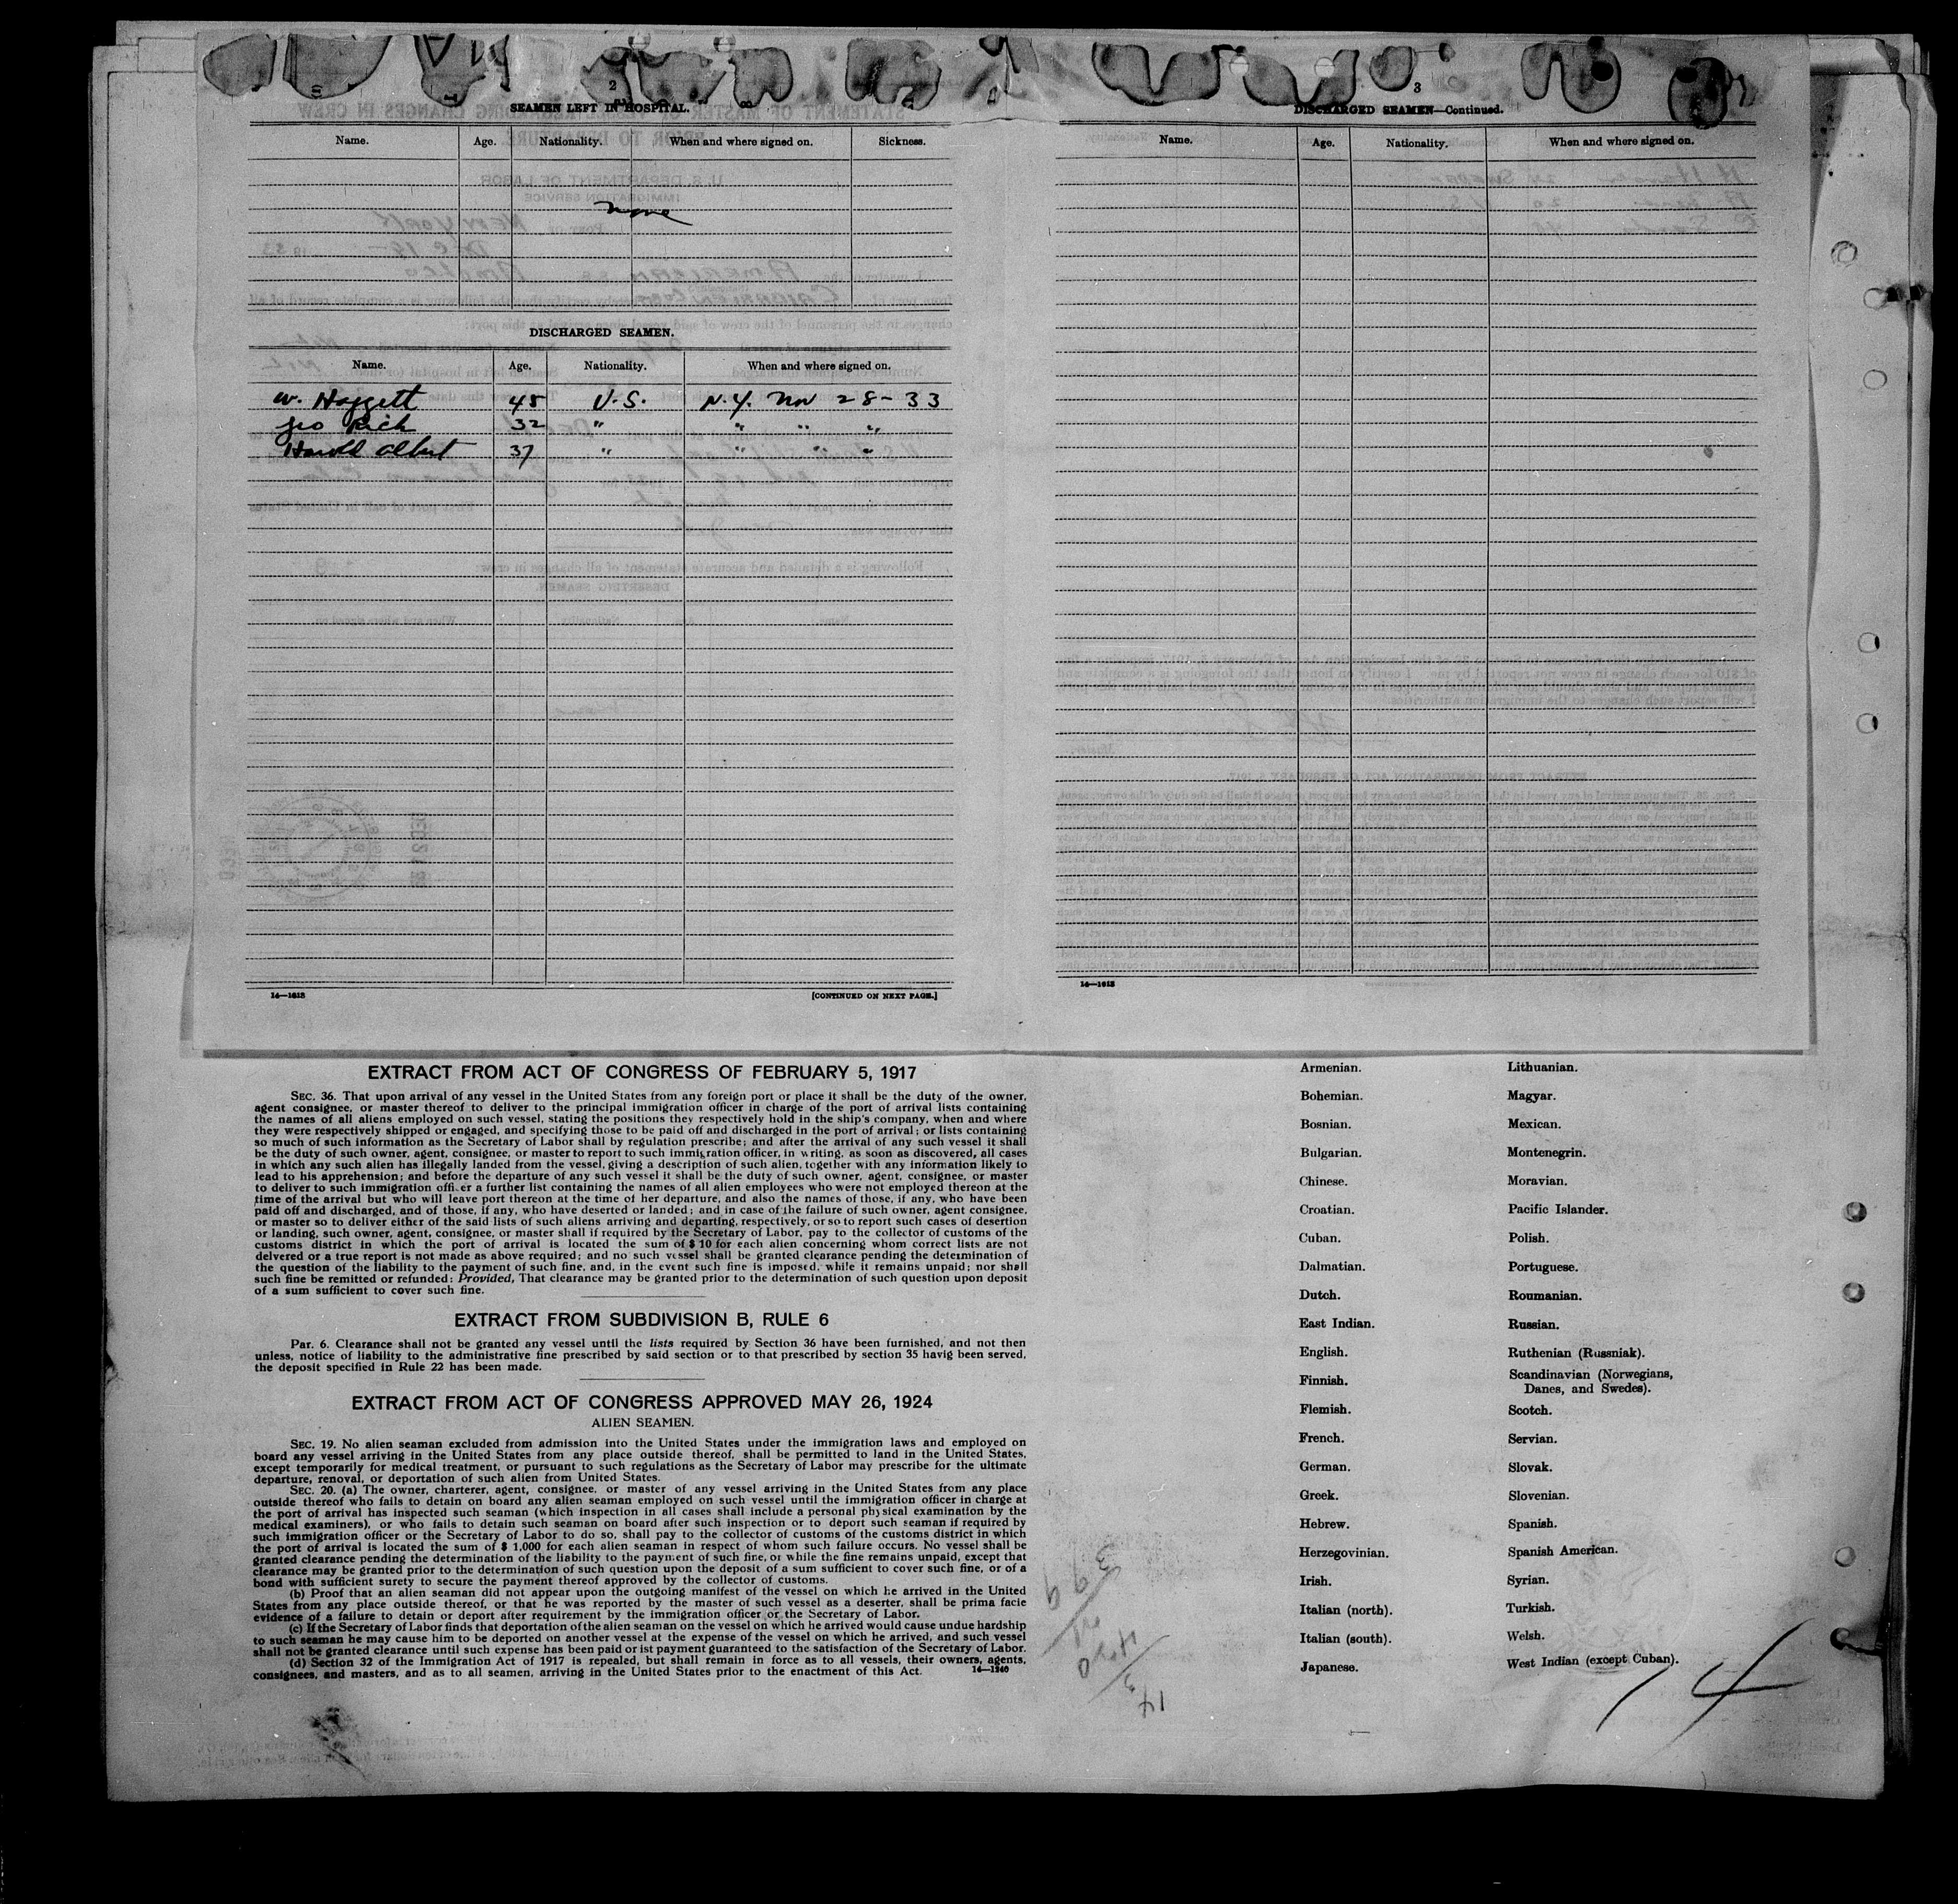 2
SEAMEN LEFT IN HOSPITAL.
Name. Age. Nationality. When and where signed on. Sickness.
none
DISCHARGED SEAMEN.
Name. Age. Nationality. When and where signed on.
W. Haggett 45 U.S. N.Y. Nov 28-33
Geo Rich 32 " " " "
Harold Albert 37 " " " "
14—1613
[CONTINUED ON NEXT PAGE.]
3
DISCHARGED SEAMEN—Continued.
Name. Age. Nationality. When and where signed on.
14—1613
EXTRACT FROM ACT OF CONGRESS OF FEBRUARY 5, 1917
SEC. 36. That upon arrival of any vessel in the United States from any foreign port or place it shall be the duty of the owner,
agent consignee, or master thereof to deliver to the principal immigration officer in charge of the port of arrival lists containing
the names of all aliens employed on such vessel, stating the positions they respectively hold in the ship's company, when and where
they were respectively shipped or engaged, and specifying those to be paid off and discharged in the port of arrival; or lists containing
so much of such information as the Secretary of Labor shall by regulation prescribe; and after the arrival of any such vessel it shall
be the duty of such owner, agent, consignee, or master to report to such immigration officer, in writing, as soon as discovered, all cases
in which any such alien has illegally landed from the vessel, giving a description of such alien, together with any information likely to
lead to his apprehension; and before the departure of any such vessel it shall be the duty of such owner, agent, consignee, or master
to deliver to such immigration officer a further list containing the names of all alien employees who were not employed thereon at the
time of the arrival but who will leave port thereon at the time of her departure, and also the names of those, if any, who have been
paid off and discharged, and of those, if any, who have deserted or landed; and in case of the failure of such owner, agent consignee,
or master so to deliver either of the said lists of such aliens arriving and departing, respectively, or so to report such cases of desertion
or landing, such owner, agent, consignee, or master shall if required by the Secretary of Labor, pay to the collector of customs of the
customs district in which the port of arrival is located the sum of $ 10 for each alien concerning whom correct lists are not
delivered or a true report is not made as above required; and no such vessel shall be granted clearance pending the determination of
the question of the liability to the payment of such fine, and, in the event such fine is imposed, while it remains unpaid; nor shall
such fine be remitted or refunded: Provided, That clearance may be granted prior to the determination of such question upon deposit
of a sum sufficient to cover such fine.
EXTRACT FROM SUBDIVISION B, RULE 6
Par. 6. Clearance shall not be granted any vessel until the lists required by Section 36 have been furnished, and not then
unless, notice of liability to the administrative fine prescribed by said section or to that prescribed by section 35 havig been served,
the deposit specified in Rule 22 has been made.
EXTRACT FROM ACT OF CONGRESS APPROVED MAY 26, 1924
ALIEN SEAMEN.
SEC. 19. No alien seaman excluded from admission into the United States under the immigration laws and employed on
board any vessel arriving in the United States from any place outside thereof, shall be permitted to land in the United States,
except temporarily for medical treatment, or pursuant to such regulations as the Secretary of Labor may prescribe for the ultimate
departure, removal, or deportation of such alien from United States.
SEC. 20. (a) The owner, charterer, agent, consignee, or master of any vessel arriving in the United States from any place
outside thereof who fails to detain on board any alien seaman employed on such vessel until the immigration officer in charge at
the port of arrival has inspected such seaman (which inspection in all cases shall include a personal physical examination by the
medical examiners), or who fails to detain such seaman on board after such inspection or to deport such seaman if required by
such immigration officer or the Secretary of Labor to do so, shall pay to the collector of customs of the customs district in which
the port of arrival is located the sum of $ 1,000 for each alien seaman in respect of whom such failure occurs. No vessel shall be
granted clearance pending the determination of the liability to the payment of such fine, or while the fine remains unpaid, except that
clearance may be granted prior to the determination of such question upon the deposit of a sum sufficient to cover such fine, or of a
bond with sufficient surety to secure the payment thereof approved by the collector of customs.
(b) Proof that an alien seaman did not appear upon the outgoing manifest of the vessel on which he arrived in the United
States from any place outside thereof, or that he was reported by the master of such vessel as a deserter, shall be prima facie
evidence of a failure to detain or deport after requirement by the immigration officer or the Secretary of Labor.
(c) If the Secretary of Labor finds that deportation of the alien seaman on the vessel on which he arrived would cause undue hardship
to such seaman he may cause him to be deported on another vessel at the expense of the vessel on which he arrived, and such vessel
shall not be granted clearance until such expense has been paid or ist payment guaranteed to the satisfaction of the Secretary of Labor.
(d) Section 32 of the Immigration Act of 1917 is repealed, but shall remain in force as to all vessels, their owners, agents,
consignees, and masters, and as to all seamen, arriving in the United States prior to the enactment of this Act. 14—1240
Armenian. Lithuanian.
Bohemian. Magyar.
Bosnian. Mexican.
Bulgarian. Montenegrin.
Chinese. Moravian.
Croatian. Pacific Islander.
Cuban. Polish.
Dalmatian. Portuguese.
Dutch. Roumanian.
East Indian. Russian.
English. Ruthenian (Russniak).
Finnish. Scandinavian (Norwegians,
Danes, and Swedes).
Flemish. Scotch.
French. Servian.
German. Slovak.
Greek. Slovenian.
Hebrew. Spanish.
Herzegovinian. Spanish American.
Irish. Syrian.
Italian (north). Turkish.
Italian (south). Welsh.
Japanese. West Indian (except Cuban).
14